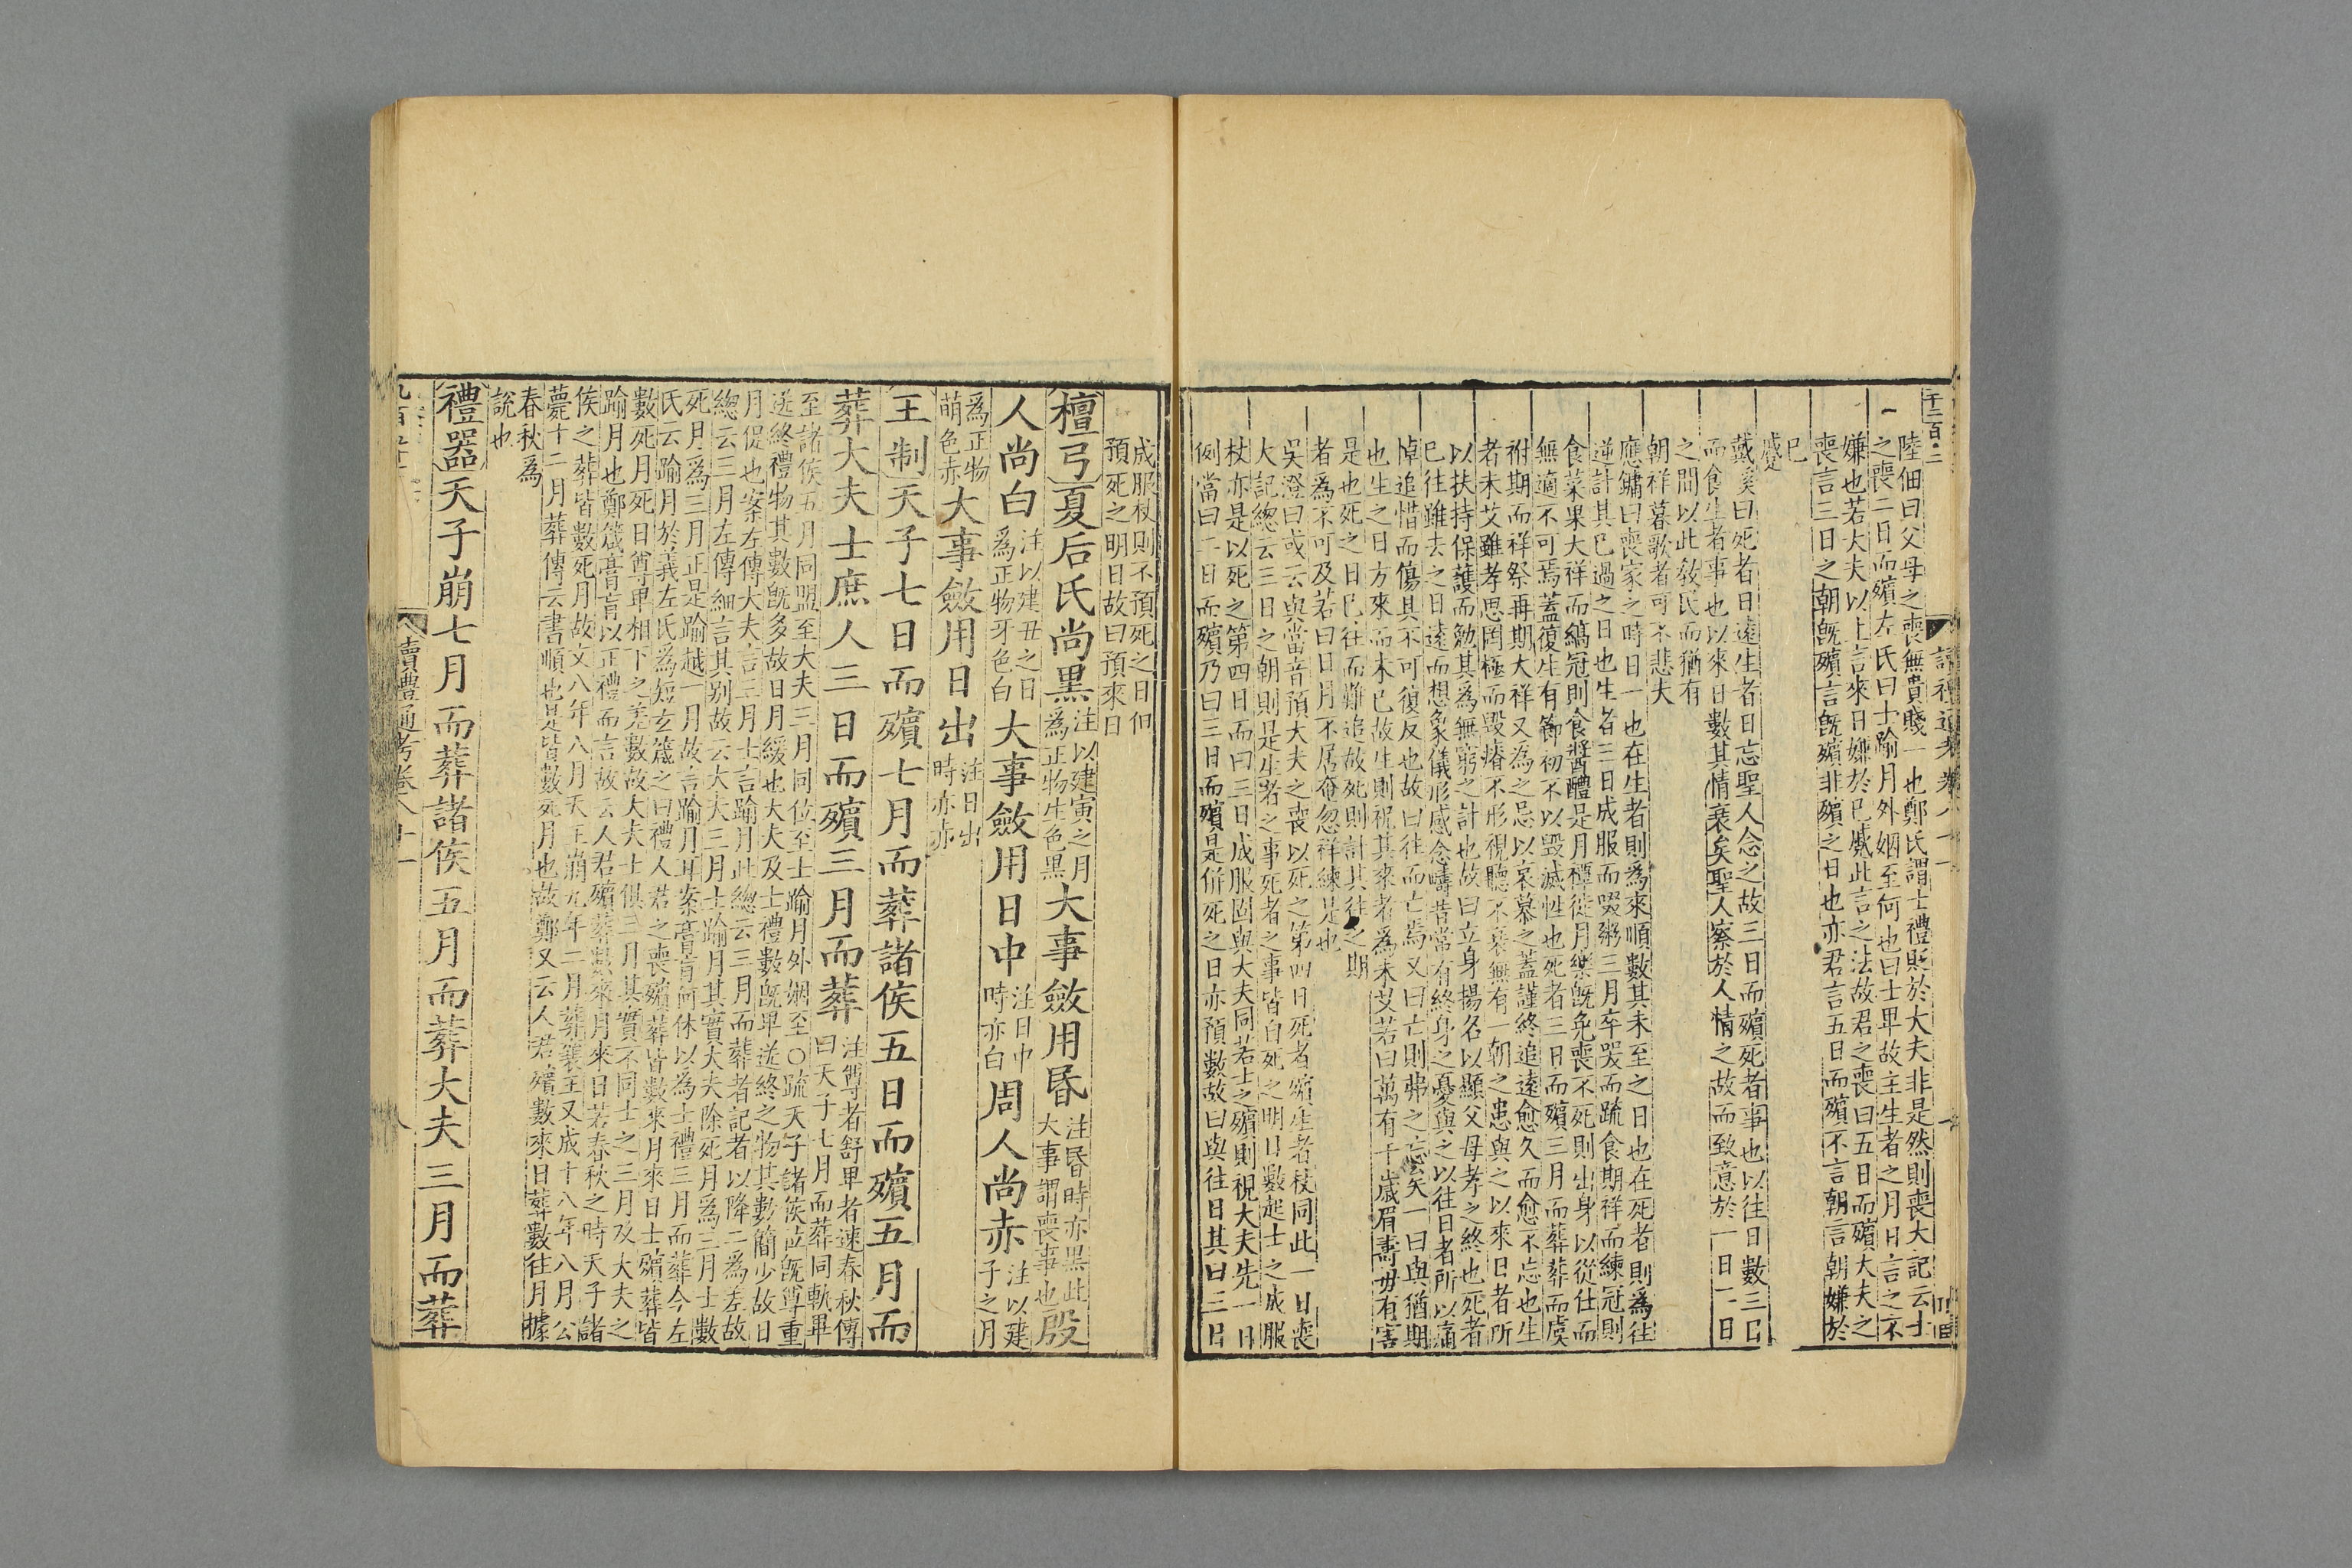 陸佃曰父母之喪無貴賤一也鄭氏謂士禮貶於大夫非是然則喪大記云士
之喪二日而殯左氏曰士踰月外姻至何也曰士卑故主生者之月日言之不
嫌也若大夫以上言來日嫌於已蹙此言之法故君之喪曰五日而殯大夫之
喪言三日之朝旣殯言旣殯非殯之日也亦君言五日而殯不言朝言朝嫌於
已
蹙
戴溪曰死者日遠生者日忘聖人念之故三日而殯死者事也以往日數三日
而食生者事也以來日數其情衰矣聖人察於人情之故而致意於一日二日
之間以此敎民而猶有
朝祥暮歌者可不悲夫
應鏞曰喪家之時日一也在生者則爲來順數其未至之日也在死者則爲往
逆計其已過之日也生者三日成服而啜粥三月卒哭而䟽食期祥而練冠則
食菜果大祥而縞冠則食醬醴是月禫徙月樂旣免喪不死則出身以從仕而
無適不可焉蓋復生有節初不以毀滅性也死者三日而殯三月而葬葬而虞
祔期而祥祭再期大祥又爲之忌以哀慕之蓋謹終追遠愈久而愈不忘也生
者未艾雖孝思罔極而毀瘠不形視聽不衰無有一朝之患與之以來日者所
以扶持保護而勉其爲無窮之計也故曰立身揚名以顯父母孝之終也死者
已往雖去之日遠而想象儀形感念疇昔常有終身之憂與之以往日者所以痛
悼追惜而傷其不可復反也故曰往而亡焉又曰亡則弗之忘矣一曰與猶期
也生之日方來而未已故生則祝其來者爲未艾若曰萬有千歲眉壽毋有害
是也死之日已往而難追故死則計其往之期
者爲不可及若曰日月不居奄忽祥練是也
吳澄曰或云與當音預大夫之喪以死之第四日死者殯生者杖同此一日喪
大記總云三日之朝則是生者之事死者之事皆自死之明日數起士之成服
杖亦是以死之第四日而曰三日成服固與大夫同若士之殯則視大夫先一日
例當曰二日而殯乃曰三日而殯是併死之日亦預數故曰與往日其曰三日
成服杖則不預死之日但
預死之明日故曰預來日
檀弓夏后氏尚黑注以建寅之月爲正物生色黑大事斂用昏注昏時亦黑此大事謂喪事也殷
人尚白注以建丑之日爲正物牙色白大事斂用日中注日中時亦白周人尚赤注以建子之月
爲正物萌色赤大事斂用日出注日出時亦赤
王制天子七日而殯七月而葬諸侯五日而殯五月而
葬大夫士庶人三日而殯三月而葬注尊者舒卑者速春秋傳曰天子七月而葬同軌畢
至諸侯五月同盟至大夫三月同位至士踰月外姻至○疏天子諸侯位旣尊重
送終禮物其數旣多故日月緩也大夫及士禮數旣卑送終之物其數簡少故日
月促也案左傳大夫言三月士言踰月此總云三月而葬者記者以降二爲差故
總云三月左傳細言其别故云大夫三月士踰月其實大夫除死月爲三月士數
死月爲三月正是踰越一月故言踰月耳案膏肓何休以爲士禮三月而葬今左
氏云踰月於義左氏爲短玄箴之曰禮人君之喪殯葬皆數來月來日士殯葬皆
數死月死日尊卑相下之差數故大夫士俱三月其實不同士之三月及大夫之
踰月也鄭箴膏肓以正禮而言故云人君殯葬數來月來日若春秋之時天子諸
侯之葬皆數死月故文八年八月天王崩九年二月葬襄王又成十八年八月公
薨十二月葬傳云書順也是皆數死月也故鄭又云人君殯數來日葬數往月據
春秋爲
說也
禮器天子崩七月而葬諸侯五月而葬大夫三月而葬
讀禮通考卷八十一